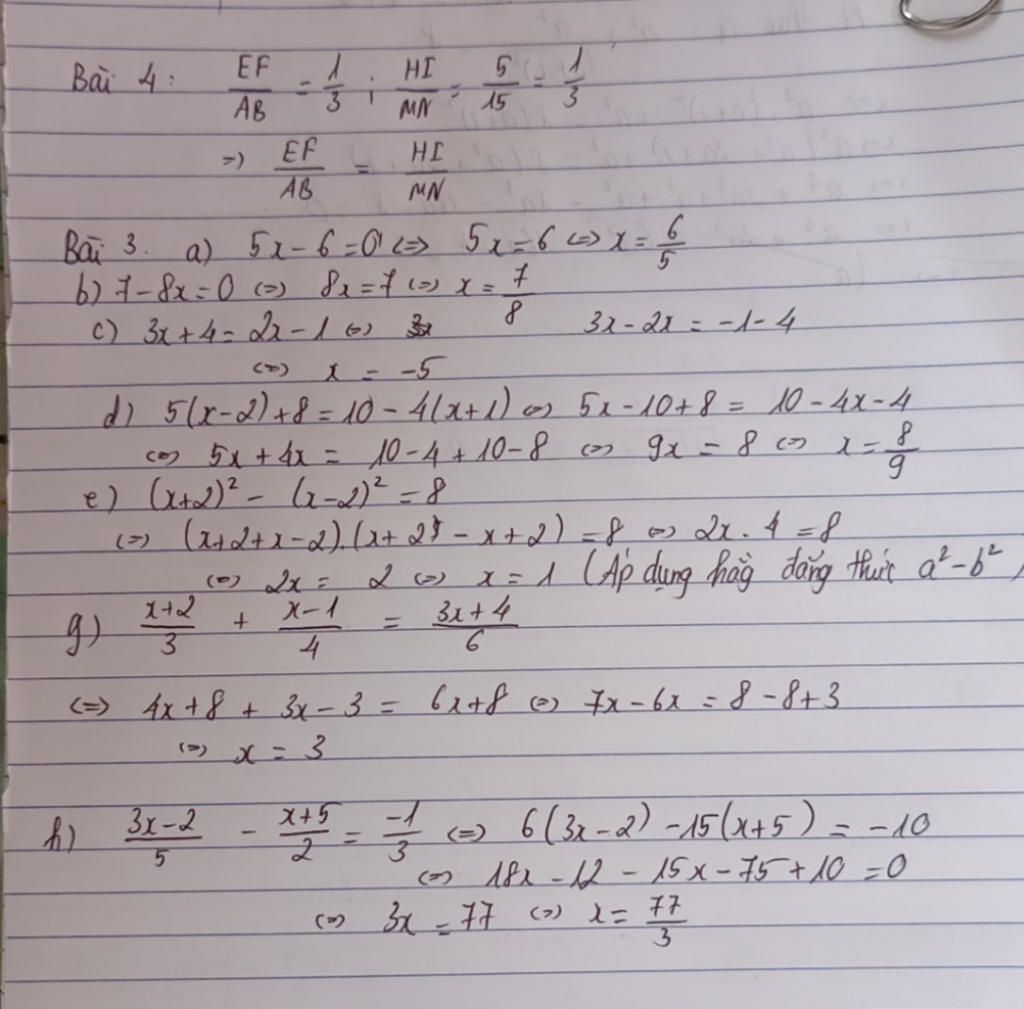 Bài 4: EF/AB = 1/3 ; HI/MN = 5/15 = 1/3
=> EF/AB = HI/MN
Bài 3. a) 5x - 6 = 0 <=> 5x = 6 <=> x = 6/5
b) 7 - 8x = 0 <=> 8x = 7 <=> x = 7/8
c) 3x + 4 = 2x - 1 <=> 3x - 2x = -1 - 4
<=> x = -5
d) 5(x-2) + 8 = 10 - 4(x+1) <=> 5x - 10 + 8 = 10 - 4x - 4
<=> 5x + 4x = 10 - 4 + 10 - 8 <=> 9x = 8 <=> x = 8/9
e) (x+2)² - (x-2)² = 8
<=> (x+2+x-2).(x+2-x+2) = 8 <=> 2x . 4 = 8
<=> 2x = 2 <=> x = 1 (Áp dụng hằg đẳng thức a² - b²)
g) (x+2)/3 + (x-1)/4 = (3x+4)/6
<=> 4x + 8 + 3x - 3 = 6x + 8 <=> 7x - 6x = 8 - 8 + 3
<=> x = 3
h) (3x-2)/5 - (x+5)/2 = -1/3 <=> 6(3x-2) - 15(x+5) = -10
<=> 18x - 12 - 15x - 75 + 10 = 0
<=> 3x = 77 <=> x = 77/3